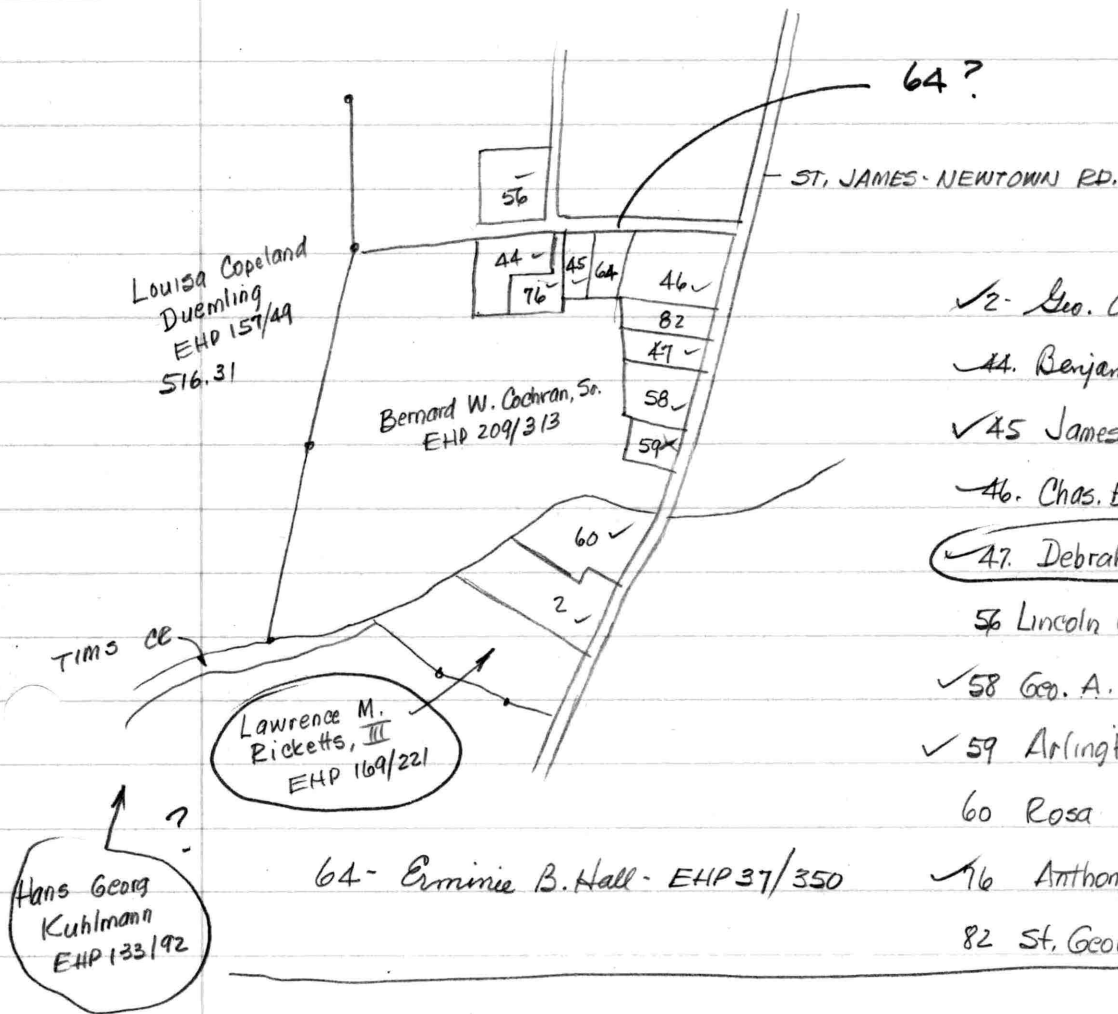 64?
ST. JAMES-NEWTOWN RD.
56
44
76
45
64
46
82
47
58
59
60
2
Louisa Copeland
Duemling
EHP 157/49
516.31
Bernard W. Cochran, Sr.
EHP 209/313
TIMS CR
Lawrence M.
Ricketts, III
EHP 169/221
?
Hans Georg
Kuhlmann
EHP 133/92
64- Erminie B. Hall- EHP 37/350
✓2- Geo.
✓44. Benjam
✓45 James
✓46. Chas.
✓47. Debrah
56 Lincoln
✓58 Geo. A.
✓59 Arlingt
60 Rosa
✓76 Anthon
82 St. Geo